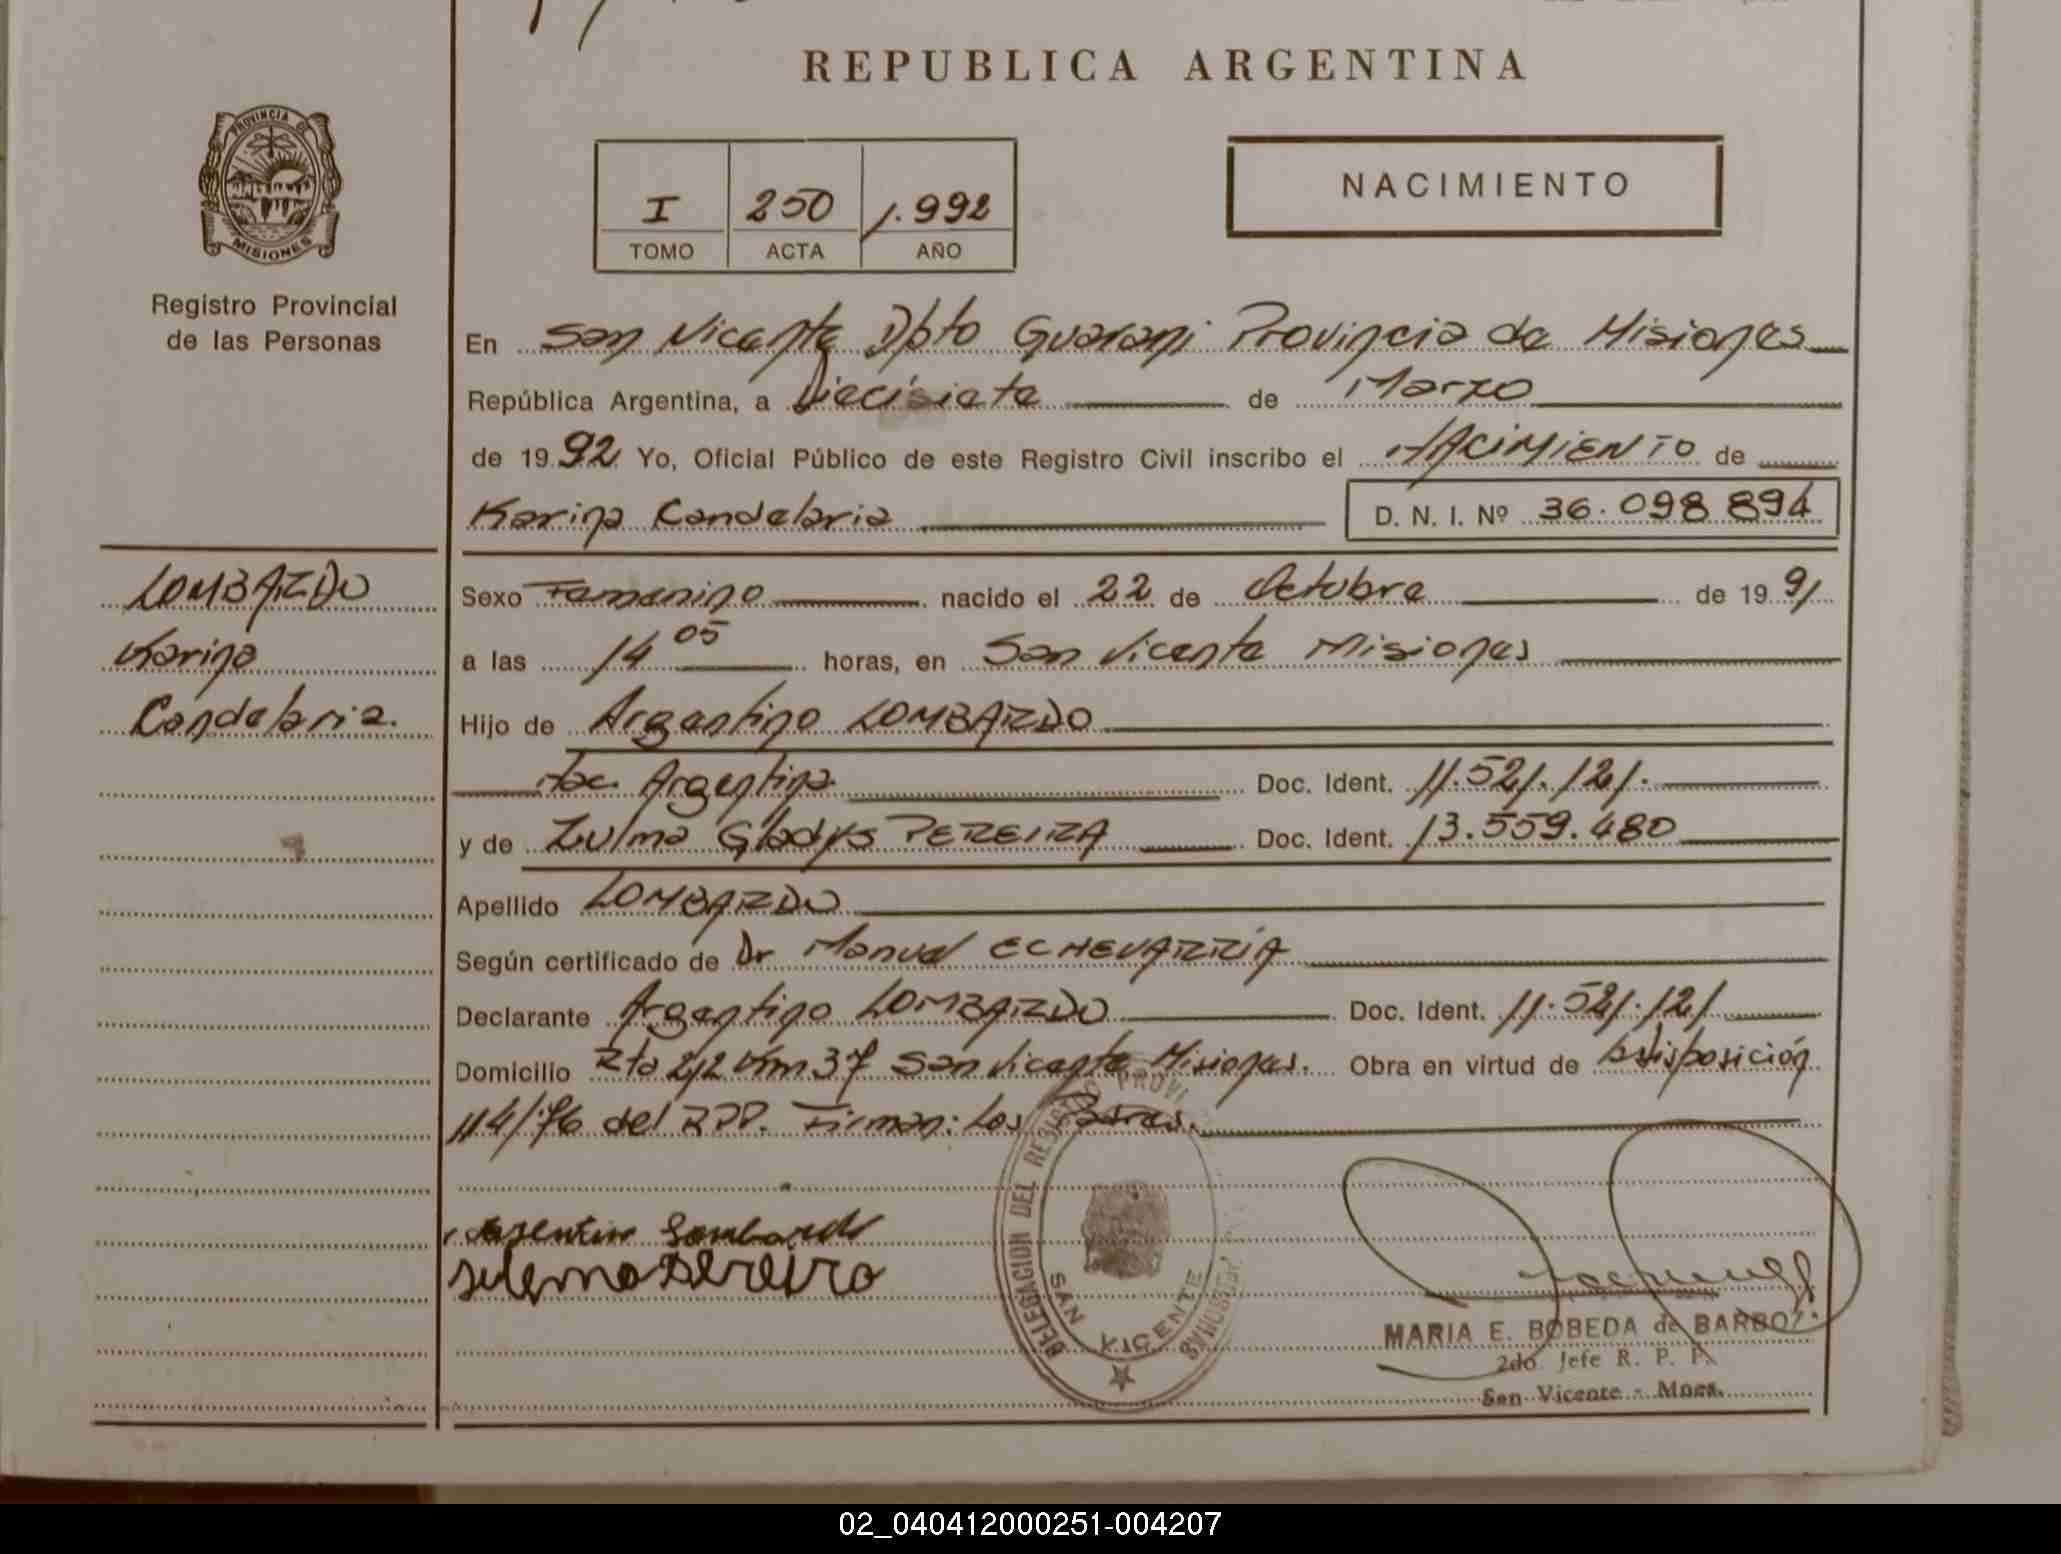 REPUBLICA ARGENTINA
PROVINCIA DE
MISIONES
Registro Provincial
de las Personas
I 250 1.992
TOMO ACTA AÑO
NACIMIENTO
En San Vicente Dpto Guarani Provincia de Misiones
República Argentina, a Diecisiete de Marzo
de 1992 Yo, Oficial Público de este Registro Civil inscribo el NACIMIENTO de
Karina Candelaria D. N. I. Nº 36.098.894
LOMBARDO
Karina
Candelaria.
Sexo Femenino nacido el 22 de Octubre de 1991
a las 14 05 horas, en San Vicente Misiones
Hijo de Argentino LOMBARDO
Nac. Argentina Doc. Ident. 11.521.121.
y de Zulma Gladys PEREIRA Doc. Ident. 13.559.480
Apellido LOMBARDO
Según certificado de Dr Manuel ECHEVARRIA
Declarante Argentino LOMBARDO Doc. Ident. 11.521.121
Domicilio Rta 212 Km 37 San Vicente Misiones. Obra en virtud de disposición
114/76 del RPP. Firman: Los Padres.
Argentino Lombardo
Pereira
DELEGACION DEL REGISTRO PROVI
SAN VICENTE
MARIA E. BOBEDA de BARBOZ
2do Jefe R. P. P.
San Vicente - Mnes.
02_040412000251-004207